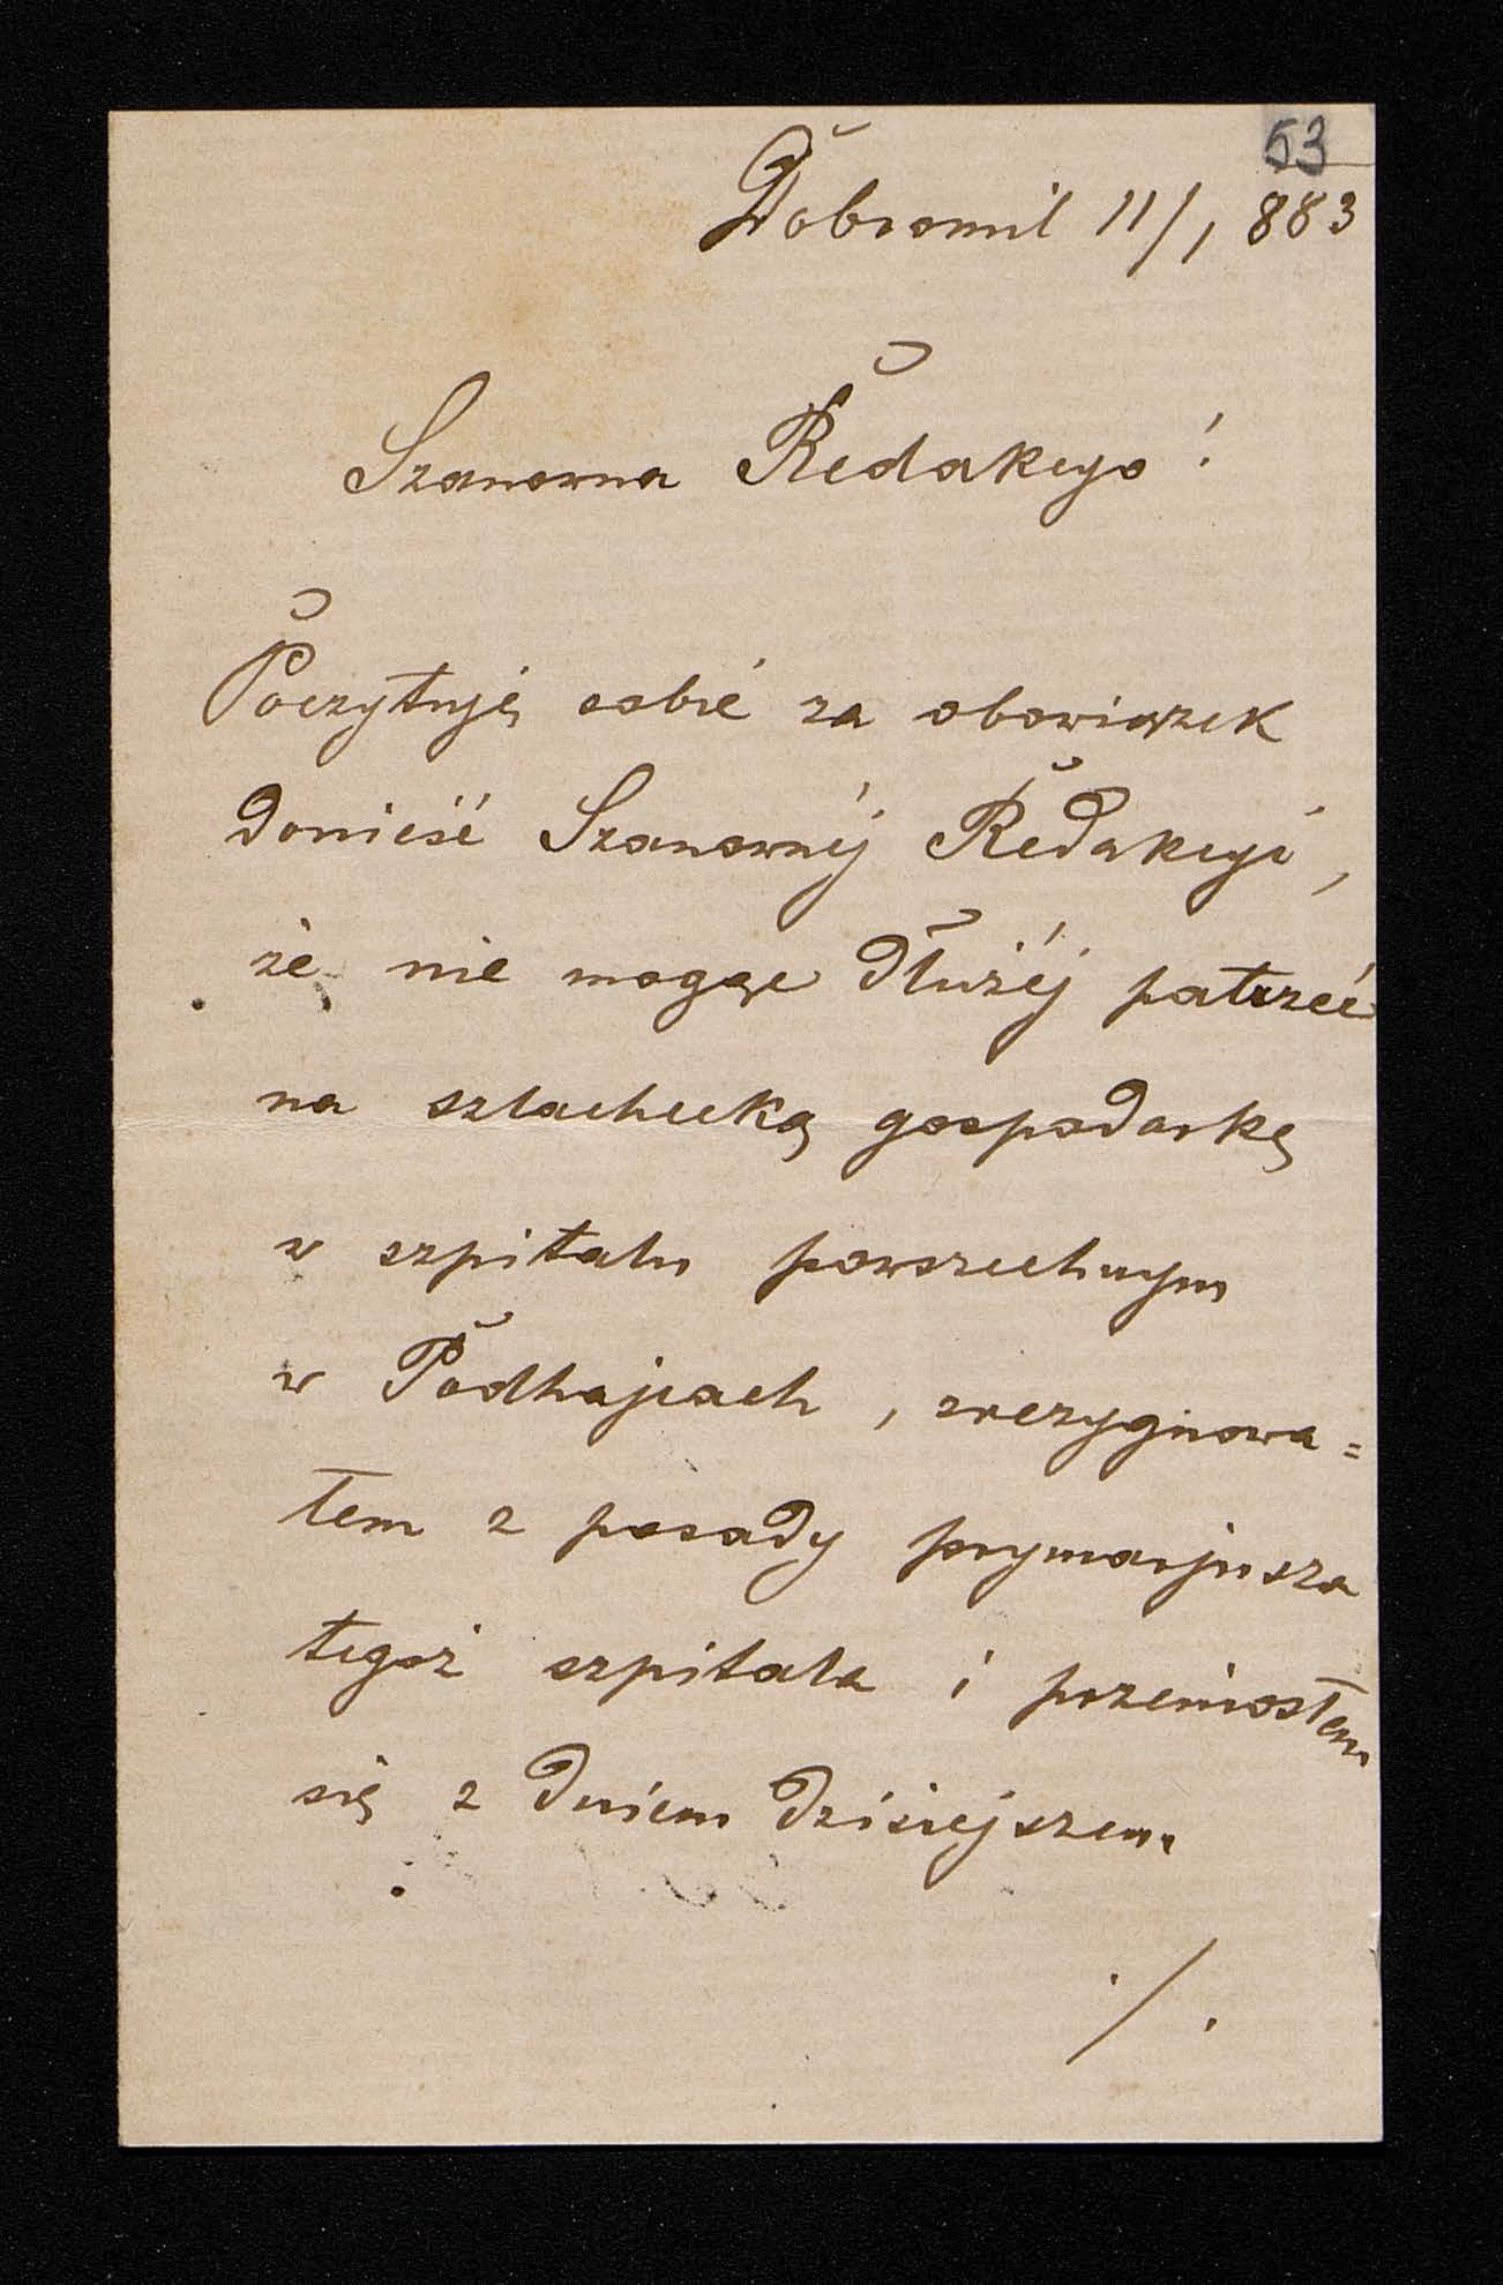 53
Dobromil 11/1 883
Szanowna Redakcyo!
Poczytuję sobie za obowiązek
donieść Szanownéj Redakcyi,
że nie mogąc dłużéj patrzeć
na szlachecką gospodarkę
w szpitalu powszechnym
w Podhajcach, zrezygnowa=
łem z posady prymarjusza
tegoż szpitala i przeniosłem
się z dniem dzisiejszem
./.